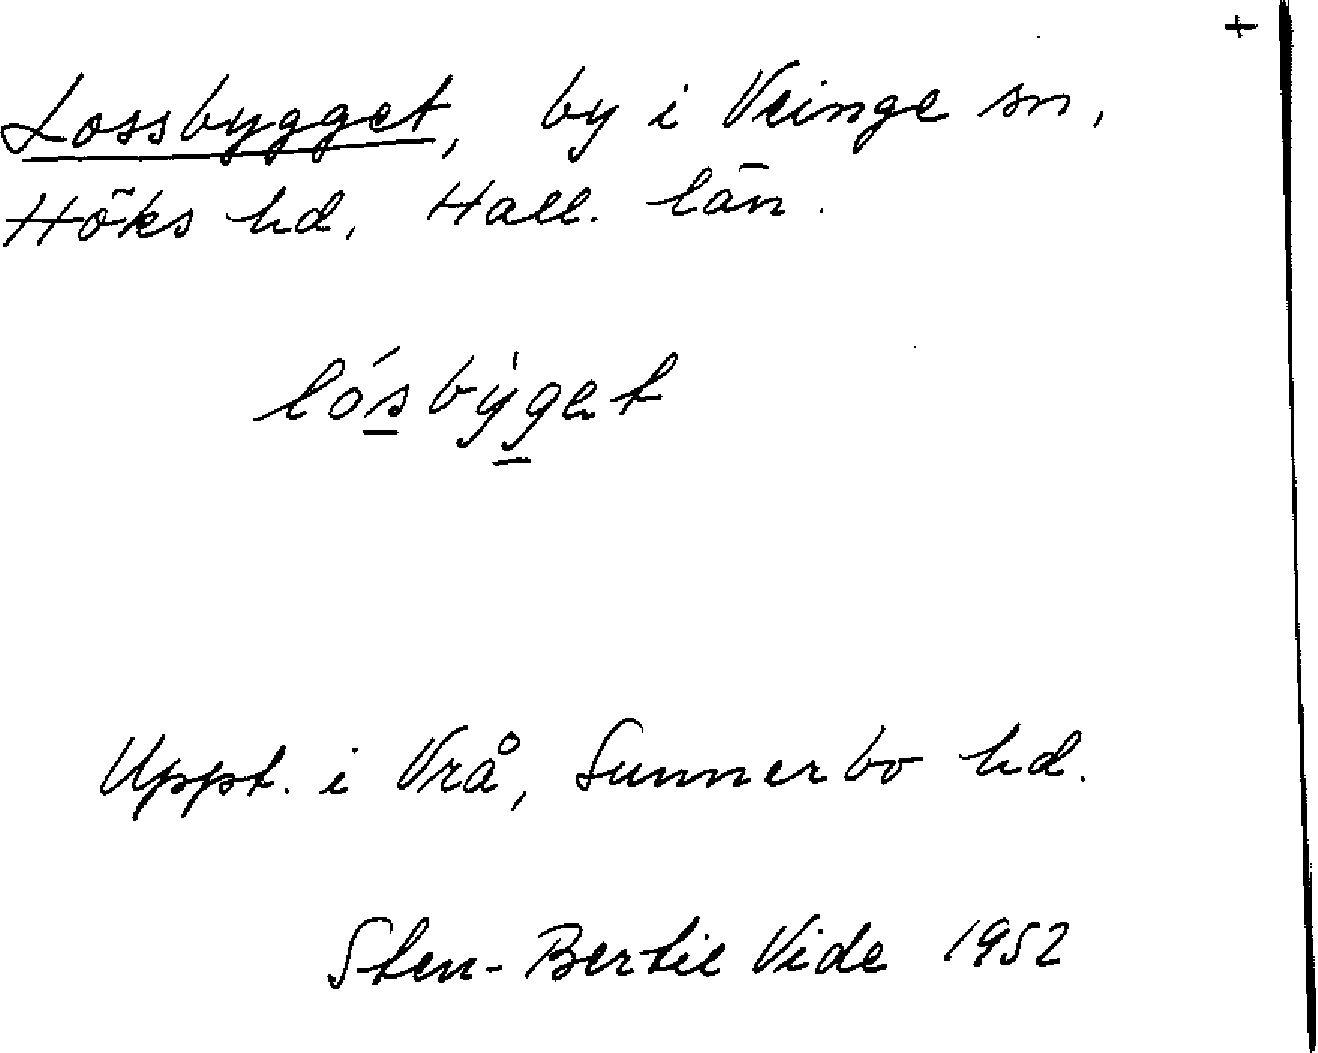 +
Lossbygget, by i Veinge sn,
Höks hd, Hall. län.
lósbỳget
Uppt. i Vrå, Sunnerbo hd.
Sten-Bertil Vide 1952